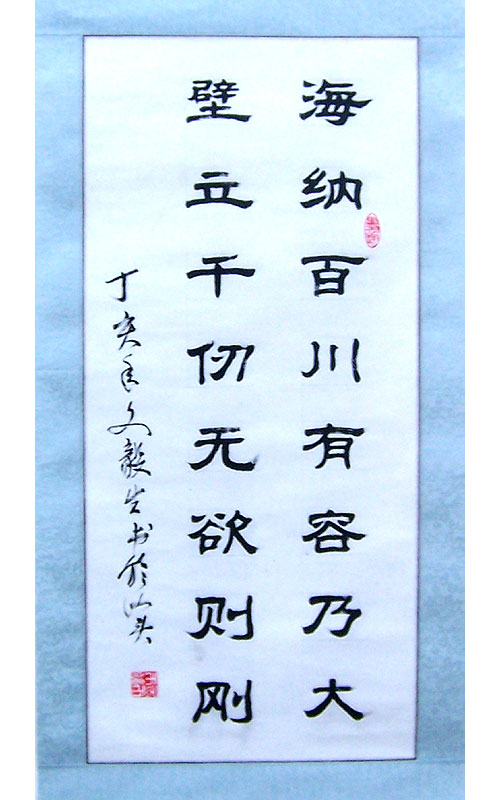 海纳百川有容乃大
壁立千仞无欲则刚
丁亥年文毅生书于汕头